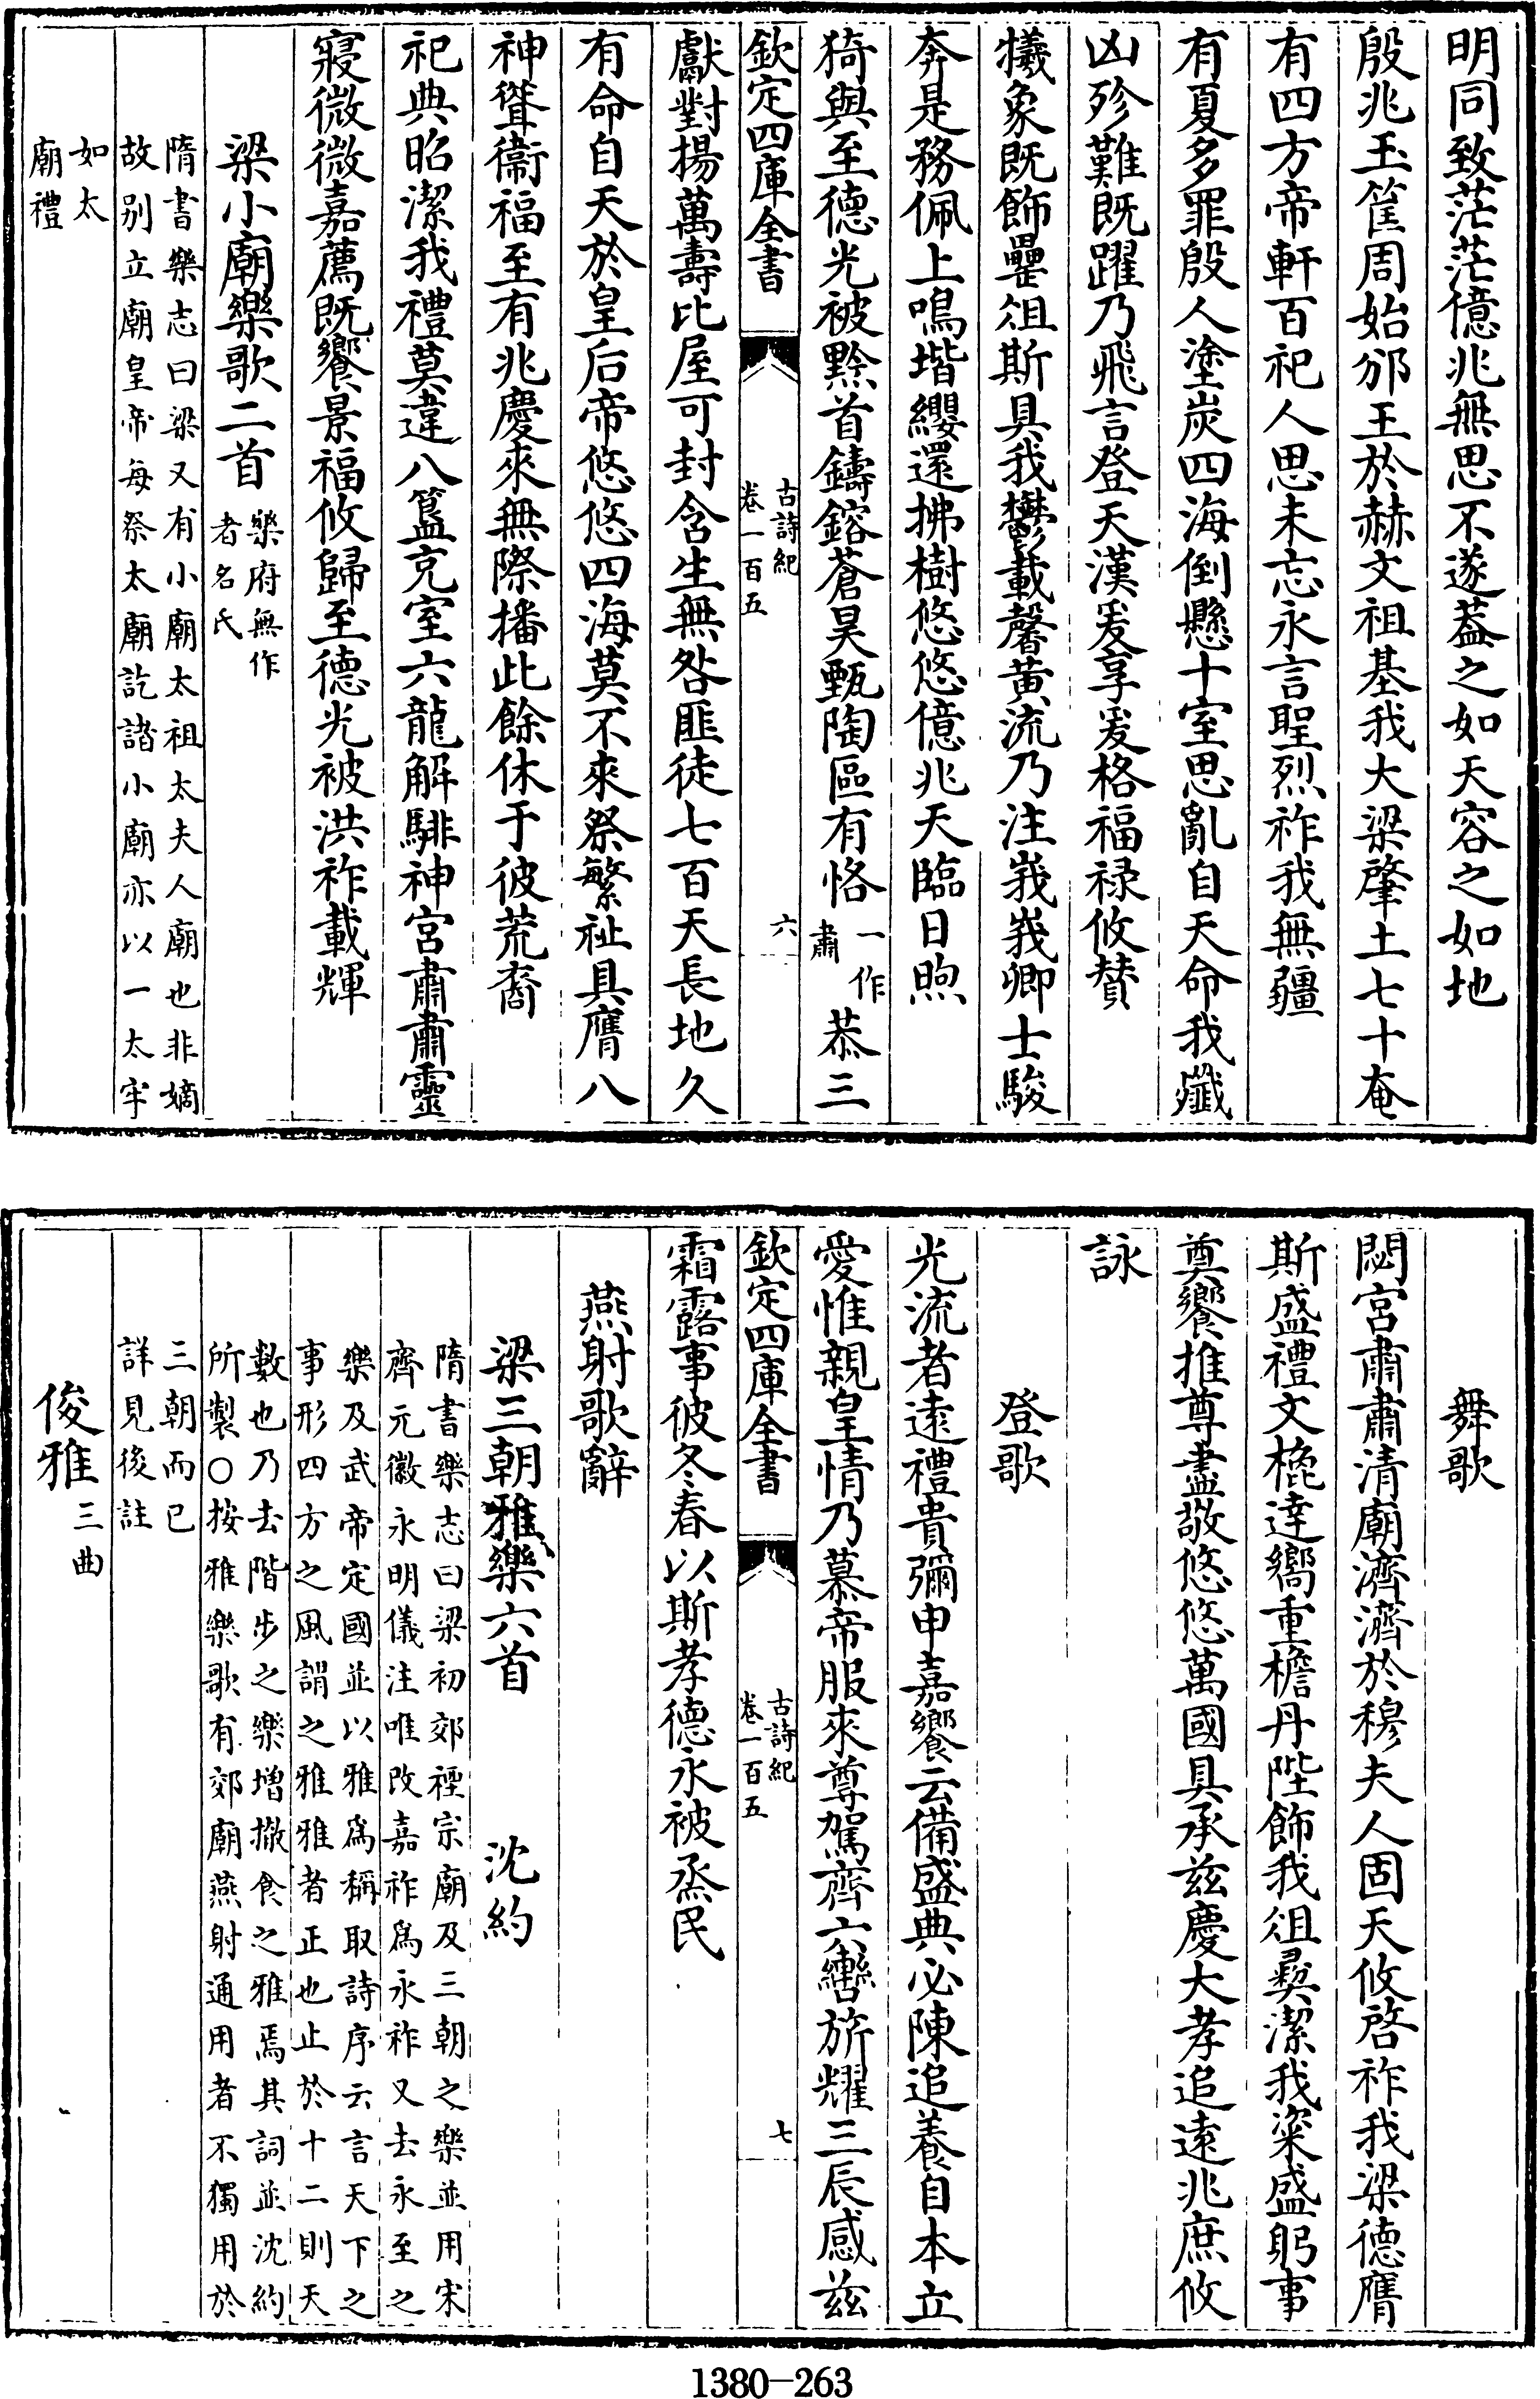 明同致茫茫億兆無思不遂蓋之如天容之如地
殷兆玉筐周始邠王於赫文祖基我大梁肇土七十奄
有四方帝軒百祀人思未忘永言聖烈祚我無疆
有夏多罪殷人塗炭四海倒懸十室思亂自天命我殲
凶殄難既躍乃飛言登天漢爰享爰格福禄攸賛
犧象既飾罍俎斯具我鬱載馨黄流乃注峩峩卿士駿
奔是務佩上鳴堦纓還拂樹悠悠億兆天臨日煦
猗與至德光被黔首鑄鎔蒼昊甄陶區有恪一作肅恭三
欽定四庫全書
古詩紀
卷一百五
六
獻對揚萬壽比屋可封含生無咎匪徒七百天長地久
有命自天於皇后帝悠悠四海莫不來祭繁祉具膺八
神聳衞福至有兆慶來無際播此餘休于彼荒裔
祀典昭潔我禮莫違八簋充室六龍解騑神宮肅肅靈
寢微微嘉薦既饗景福攸歸至德光被洪祚載輝
梁小廟樂歌二首樂府無作者名氏
隋書樂志曰梁又有小廟太祖太夫人廟也非嫡
故别立廟皇帝每祭太廟訖詣小廟亦以一太牢
如太
廟禮
舞歌
閟宮肅肅清廟濟濟於穆夫人固天攸啓祚我梁德膺
斯盛禮文㮰達嚮重檐丹陛飾我俎彛潔我粢盛躬事
奠饗推尊盡敬悠悠萬國具承兹慶大孝追遠兆庶攸
詠
登歌
光流者遠禮貴彌申嘉饗云備盛典必陳追養自本立
愛惟親皇情乃慕帝服來尊駕齊六轡旂耀三辰感兹
欽定四庫全書
古詩紀
卷一百五
七
霜露事彼冬春以斯孝德永被烝民
燕射歌辭
梁三朝雅樂六首 沈約
隋書樂志曰梁初郊禋宗廟及三朝之樂並用宋
齊元徽永明儀注唯改嘉祚爲永祚又去永至之
樂及武帝定國並以雅爲稱取詩序云言天下之
事形四方之風謂之雅雅者正也止於十二則天
數也乃去階步之樂增撤食之雅焉其詞並沈約
所製○按雅樂歌有郊廟燕射通用者不獨用於
三朝而已
詳見後註
俊雅三曲
1380-263